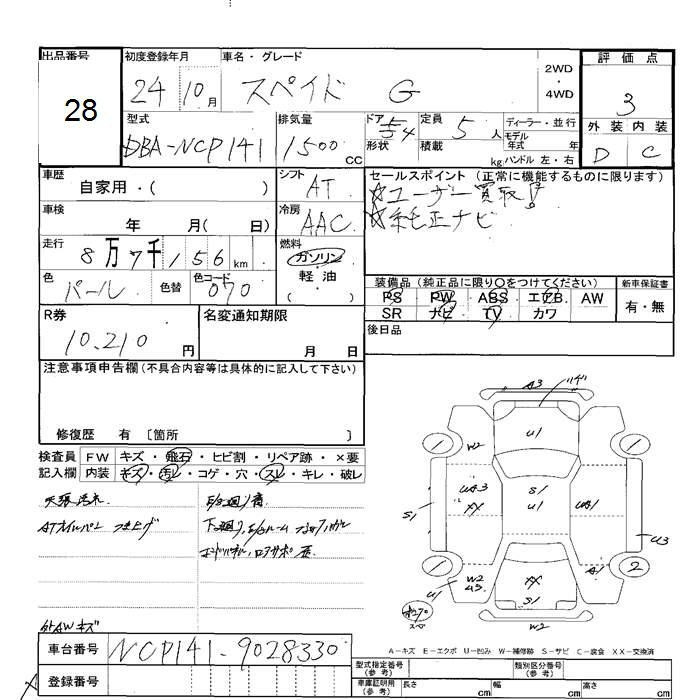 出品番号 28
初度登録年月 24 10 月
車名・グレード スペイド G
2WD ・ 4WD
評価点 3
外装 内装 D C
型式 DBA-NCP141
排気量 1500 cc
ドア 形状 5 4
定員 5 人
積載 kg
ディーラー・並行
モデル年式 年式
ハンドル 左・右
車歴 自家用・( )
シフト AT
セールスポイント (正常に機能するものに限ります)
☆ユーザー買取!
☆純正ナビ
車検 年 月( 日)
冷房 AAC
走行 8万7千156 km
燃料 ガソリン・軽油・( )
色 パール 色替 色コード 070
装備品 (純正品に限り○をつけてください)
PS PW ABS エアB AW
SR ナビ TV カワ
新車保証書 有・無
R券 10,210 円
名変通知期限 月 日
後日品
注意事項申告欄 (不具合内容等は具体的に記入して下さい)
修復歴 有 〔箇所 〕
検査員記入欄
FW キズ・飛石・ヒビ割・リペア跡・×要
内装 キズ・汚レ・コゲ・穴・スレ・キレ・破レ
天張汚れ
ATオイルパン つき上げ
下廻り
外AWキズ
A3
U1
W2
UA3
XX
S1
U1
S1
UA1
U3
A1
W2
U3
U1
XX
S1
W2
1 1 1 2
スペ
A-キズ E-エクボ U-凹み W-補修跡 S-サビ C-腐食 XX-交換済
車台番号 NCP141-9028330
登録番号
型式指定番号 (参考)
類別区分番号 (参考)
車庫証明用 (参考) 長さ cm 幅 cm 高さ cm